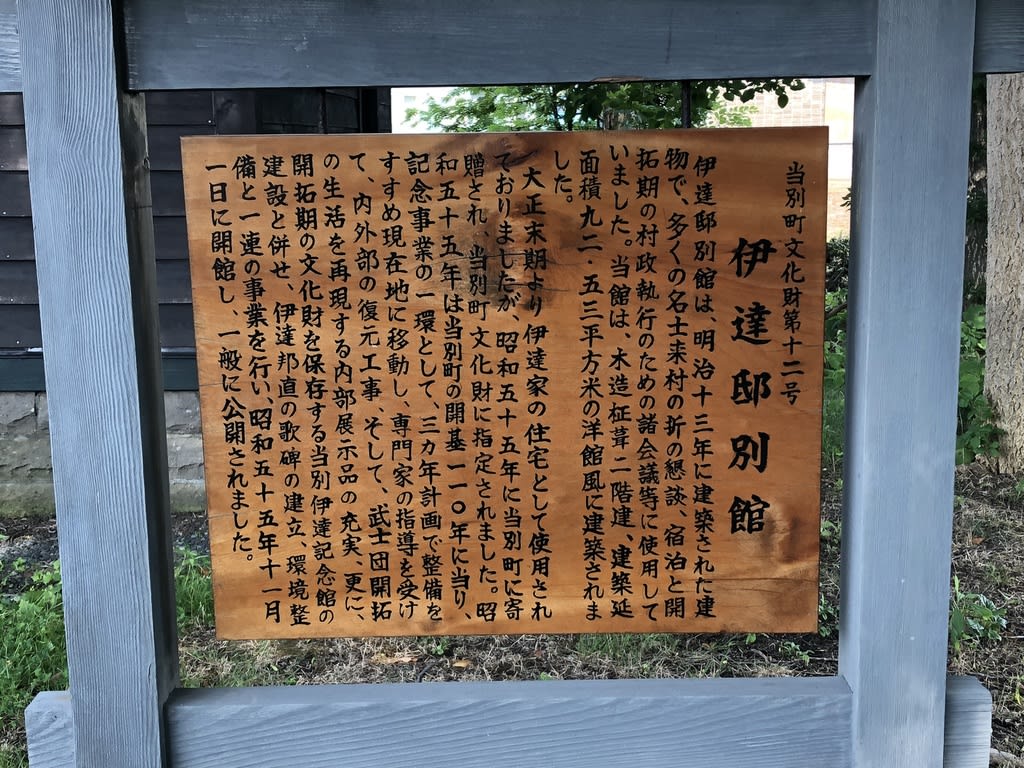 当別町文化財第十二号
伊達邸別館
伊達邸別館は、明治十三年に建築された建
物で、多くの名士来村の折の懇談、宿泊と開
拓期の村政執行のための諸会議等に使用して
いました。当館は、木造柾葺二階建、建築延
面積九二・五三平方米の洋館風に建築されま
した。
大正末期より伊達家の住宅として使用され
ておりましたが、昭和五十五年に当別町に寄
贈され、当別町文化財に指定されました。昭
和五十五年は当別町の開基一一〇年に当り、
記念事業の一環として、三カ年計画で整備を
すすめ現在地に移動し、専門家の指導を受け
て、内外部の復元工事、そして、武士団開拓
の生活を再現する内部展示品の充実、更に、
開拓期の文化財を保存する当別伊達記念館の
建設と併せ、伊達邦直の歌碑の建立、環境整
備と一連の事業を行い、昭和五十五年十一月
一日に開館し、一般に公開されました。